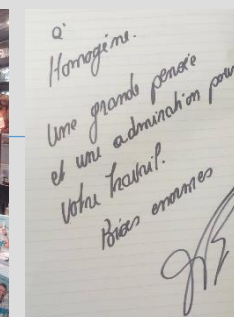 à
Homogène.
Une grande pensée
et une admiration pour
votre travail.
Bises enormes